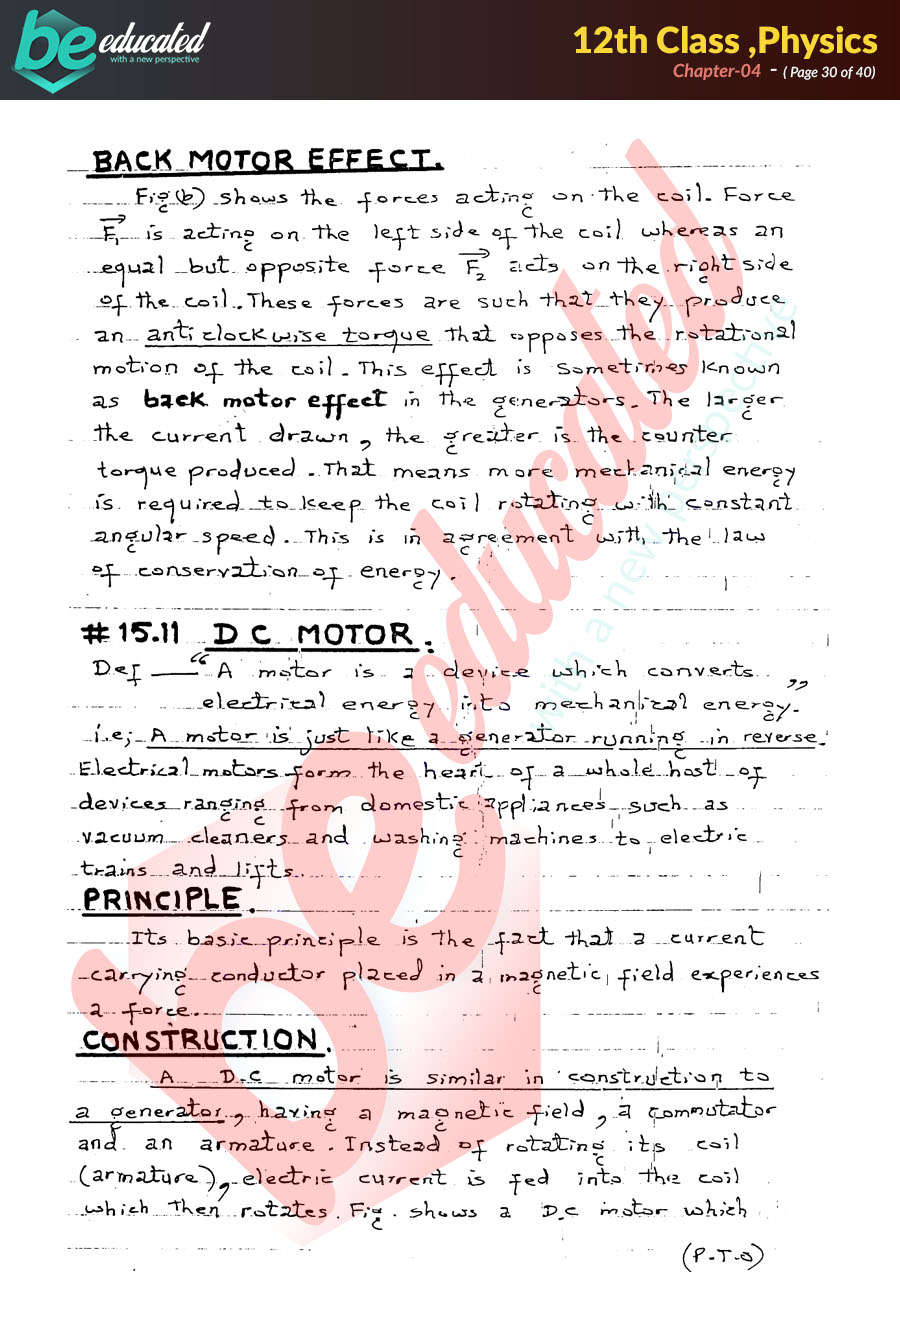 be educated
with a new perspective
12th Class ,Physics
Chapter-04 - ( Page 30 of 40)
BACK MOTOR EFFECT.
Fig(b) shows the forces acting on the coil. Force
F₁ is acting on the left side of the coil whereas an
equal but opposite force F₂ acts on the right side
of the coil. These forces are such that they produce
an anticlockwise torque that opposes the rotational
motion of the coil. This effect is sometimes known
as back motor effect in the generators. The larger
the current drawn, the greater is the counter
torque produced. That means more mechanical energy
is required to keep the coil rotating with constant
angular speed. This is in agreement with the law
of conservation of energy.
# 15.11 D C MOTOR:
Def — “A motor is a device which converts
electrical energy into mechanical energy.”
i.e; A motor is just like a generator running in reverse.
Electrical motors form the heart of a whole host of
devices ranging from domestic appliances such as
vacuum cleaners and washing machines to electric
trains and lifts.
PRINCIPLE.
Its basic principle is the fact that a current
carrying conductor placed in a magnetic field experiences
a force.
CONSTRUCTION.
A D.C motor is similar in construction to
a generator, having a magnetic field, a commutator
and an armature. Instead of rotating its coil
(armature), electric current is fed into the coil
which then rotates. Fig. shows a D.C motor which
(P.T.O)
be educated
with a new perspective